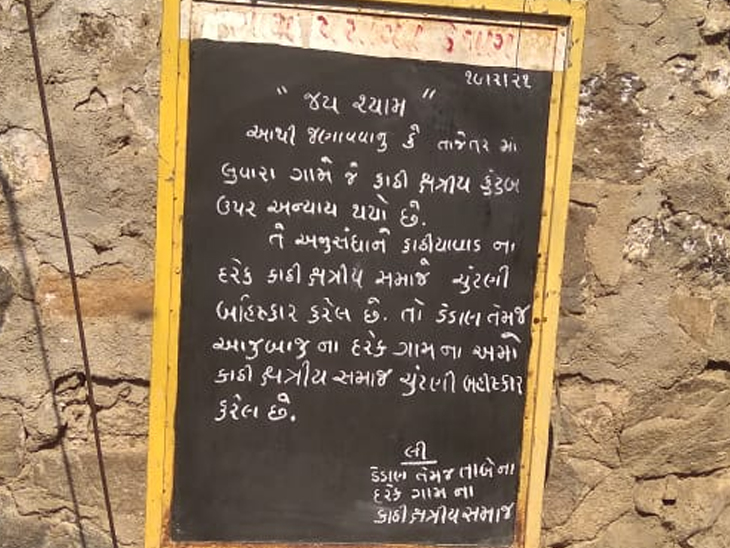 ૧૯/૨/૨૧
" જય શ્યામ "
આથી જણાવવાનુ કે તાજેતર માં
લુવારા ગામે જે કાઠી ક્ષત્રીય કુંટુબ
ઉપર અન્યાય થયો છે.
તે અનુસંધાને કાઠીયાવાડ ના
દરેક કાઠી ક્ષત્રીય સમાજે ચુંટણી
બહિષ્કાર કરેલ છે. તો કેડાણ તેમજ
આજુબાજુ ના દરેક ગામ ના અમો
કાઠી ક્ષત્રીય સમાજ ચુંટણી બહીષ્કાર
કરેલ છે.
લી
કેડાણ તેમજ તાબે ના
દરેક ગામ ના
કાઠી ક્ષત્રીય સમાજ